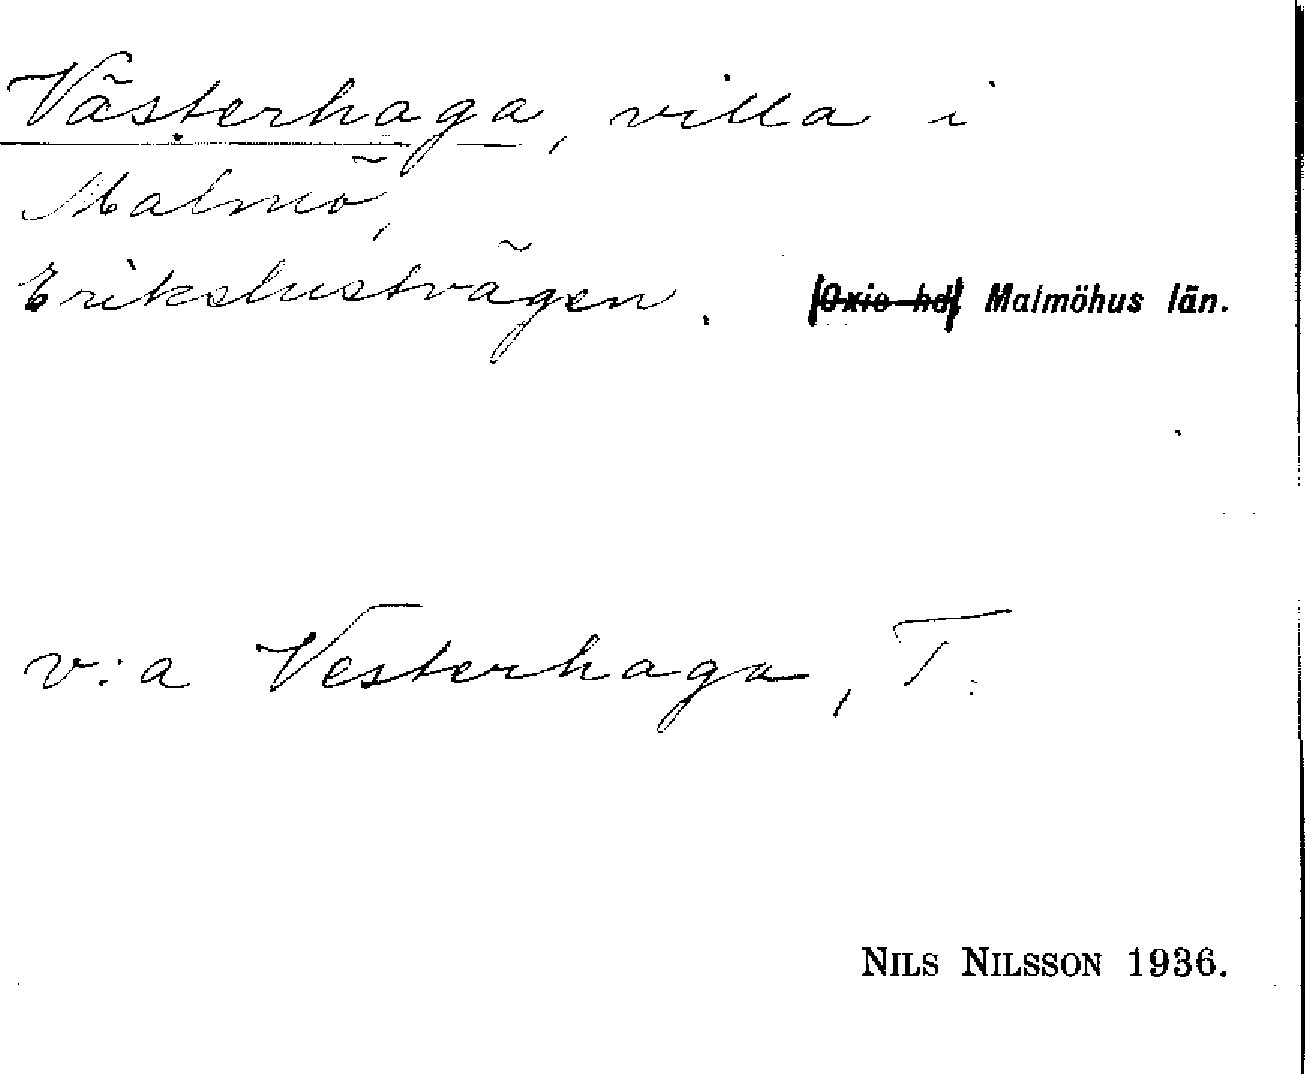 Västerhaga, villa i
Malmö,
Erikslustvägen. [Oxie hd] Malmöhus län.
v:a Vesterhaga, T.
NILS NILSSON 1936.